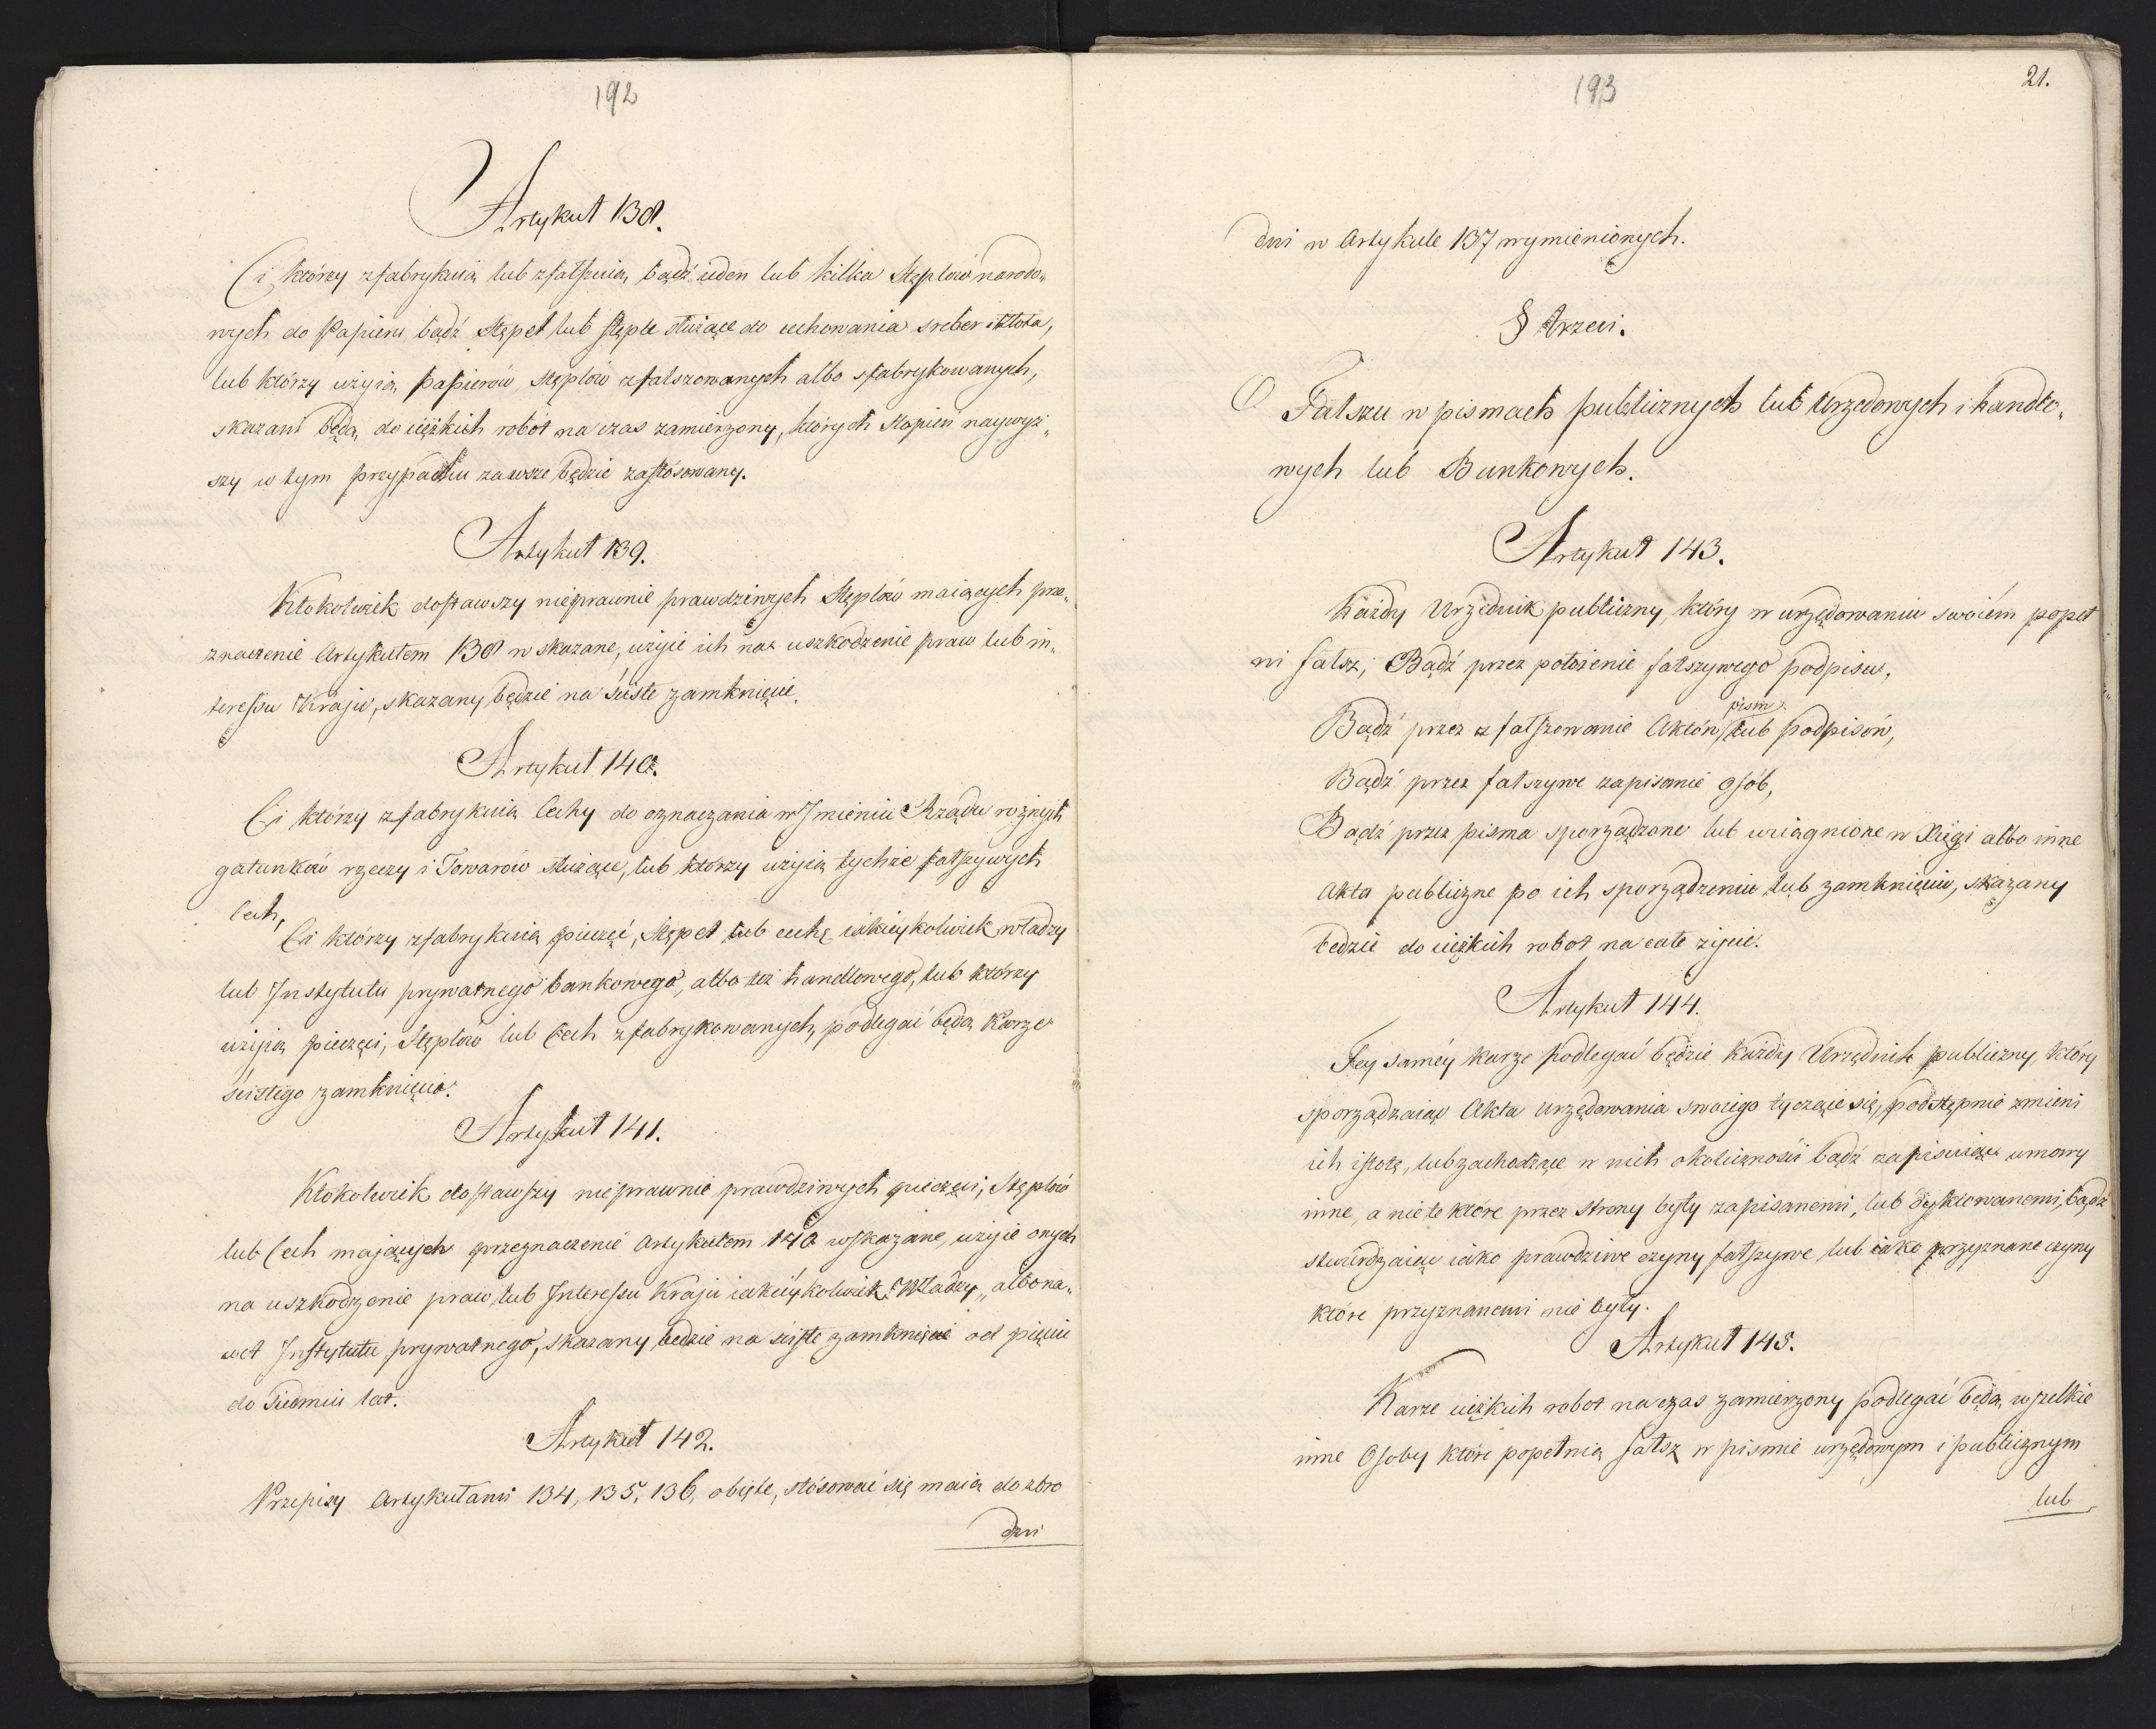 192
Artykuł 138.
Ci, którzy zfabrykuią lub zfałszuią bądź ieden lub kilka Stęplów narodo„
wych do Papieru, bądź Stępel lub stęple służące do cechowania sreber i Złota,
lub którzy użyią papierów, stęplów zfalszowanych albo sfabrykowanych,
skazani będą do ciężkich robót na czas zamierzony, których Stopień naywyż„
szy w tym przypadku zawsze będzie zastósowany.
Artykuł 139.
Ktokolwiek dostawszy nieprawnie prawdziwych Stęplów maiących prze„
znaczenie Artykułem 138 wskazane, użyie ich na uszkodzenie praw lub in„
teressu Kraju, skazany będzie na ściste zamknięcie.
Artykuł 140.
Ci którzy zfabrykuią Cechy do oznaczania w Imieniu Rządu roznych
gatunków rzeczy i Towarów służące, lub którzy użyią tychże fałszywych
Cech,
Ci którzy zfabrykuią pieczęć, Stępel lub cechę iakieykolwiek władzy
lub Instytutu prywatnego bankowego, albo też handlowego, lub którzy
użyią pieczęci, Stęplów lub Cech zfabrykowanych, podlegać będą Karze
ścisłego zamknięcia.
Artykuł 141.
Ktokolwiek dostawszy nieprawnie prawdziwych pieczęci, Stęplów
lub Cech mających przeznaczenie Artykułem 140 wskazane, użyie onych
na uszkodzenie praw, lub Interessu Kraju iakieykolwiek Władzy, albo na„
wet Instytutu prywatnego, skazany będzie na ścisłe zamknięcie od pięciu
do Siedmiu lat.
Artykuł 142.
Przepisy Artykułami 134, 135, 136, obięte, stósować się maią do zbro
dni
193
21.
dni w Artykule 137 wymienionych.
§ trzeci.
O Fałszu w pismach publicznych lub Urzędowych i handlo„
wych lub Bankowych.
Artykuł 143.
Każdy Urzędnik publiczny, który w urzędowaniu swoiém popeł
ni fałsz; Bądź przez położenie fałszywego podpisu,
pism
Bądź przez zfałszowanie Aktów, lub podpisów,
Bądź przez fałszywe zapisanie osób,
Bądź przez pisma sporządzone lub wciągnione w Xięgi albo inne
Akta publiczne po ich sporządzeniu lub zamknięciu, skazany
będzie do ciężkich robot na całe życie.
Artykuł 144.
Tey saméy karze podlegać będzie Każdy Urzędnik publiczny, który
sporządzaiąc Akta Urzędowania swoiego tyczące się, podstępnie zmieni
ich istotę, lub zachodzące w nich okoliczności bądź zapisuiąc umowy
inne, a nie te które przez Strony były zapisanemi, lub dyktowanemi, bądź
stwierdzaiąc iako prawdziwe czyny fałszywe, lub iako przyznane czyny
które przyznanemi nie były.
Artykuł 145.
Karze ciężkich robot na czas zamierzony podlegać będą wszelkie
inne Osoby które popełnią fałsz w pismie urzędowym i publicznym
lub